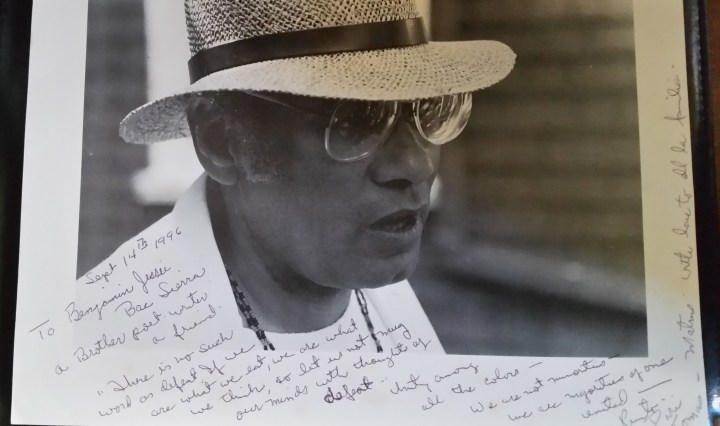 Sept 14th 1996
To Benjamin Jessie
Bac Sierra
a Brother poet writer
a friend.
"There is no such
word as defeat If we
are what we eat, we are what
we think, so let us not mug
our minds with thought of
defeat" Unity among
all the colors —
We are not minorities —
we are majorities of one
united —
Piri
with love to all la familia"